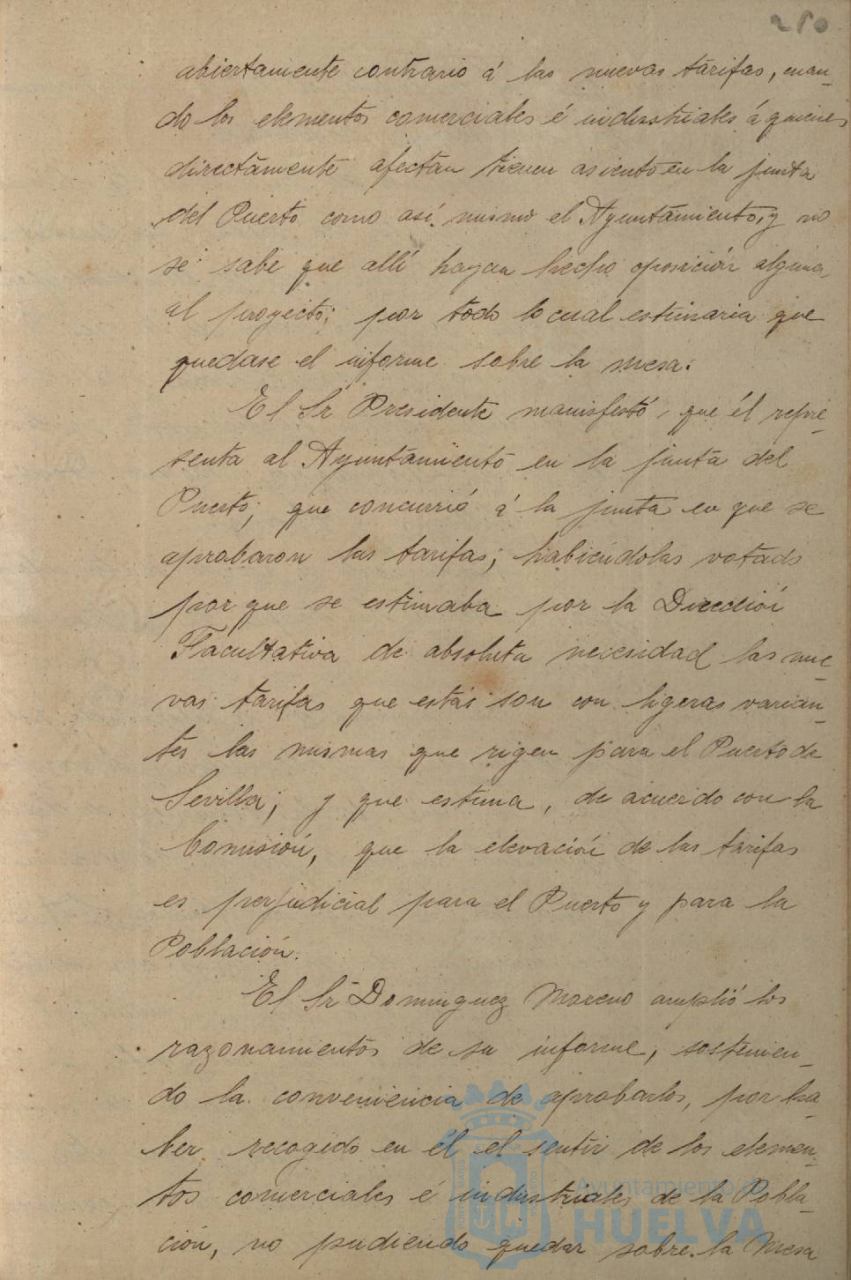 280
abiertamente contrario á las nuevas tarifas, cuan-
do los elementos comerciales é industriales á quienes
directamente afectan tienen asiento en la junta
del Puerto como así mismo el Ayuntamiento, y no
se sabe que allí hayan hecho oposición alguna
al proyecto; por todo lo cual estimaria que
quedase el informe sobre la mesa.
El Sr Presidente manifestó, que él repre-
senta al Ayuntamiento en la junta del
Puerto; que concurrió á la junta en que se
aprobaron las tarifas; habiéndolas votado
por que se estimaba por la Dirección
Facultativa de absoluta necesidad las nue-
vas tarifas que estas son con ligeras varian-
tes las mismas que rigen para el Puerto de
Sevilla; y que estima, de acuerdo con la
Comisión, que la elevación de las tarifas
es perjudicial para el Puerto y para la
Población.
El Sr Dominguez Moreno amplió los
razonamientos de su informe, sostenien-
do la conveniencia de aprobarlos, por ha-
ber recogido en él el sentir de los elemen-
tos comerciales é industriales de la Pobla-
ción, no pudiendo quedar sobre la Mesa
Ayuntamiento de
HUELVA